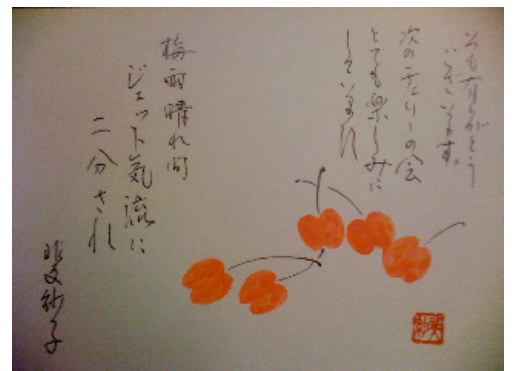 いつも有りがとう
ございます。
次のチェリーの会
とても楽しみに
しています
梅雨晴れ間
ジェット気流に
二分され
斐紗子